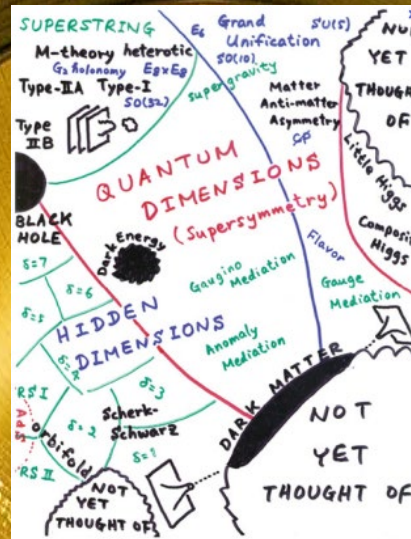 SUPERSTRING
M-theory heterotic
G₂ holonomy E₈×E₈
Type-IIA Type-I
SO(32)
Type
IIB
E₆ Grand SU(5)
Unification
SO(10)
supergravity
Matter
Anti-matter
Asymmetry
CP
YET
THOUGHT
OF
Little Higgs
Composite
Higgs
QUANTUM
DIMENSIONS
(Supersymmetry)
BLACK
HOLE
Dark Energy
Flavor
Gaugino
Mediation
Gauge
Mediation
Anomaly
Mediation
δ=7
δ=6
δ=5
HIDDEN
DIMENSIONS
δ=4
δ=3
RS I
AdS
RS II
orbifold
δ=2
Scherk-
Schwarz
δ=1
DARK MATTER
NOT
YET
THOUGHT OF
NOT
YET
THOUGHT OF